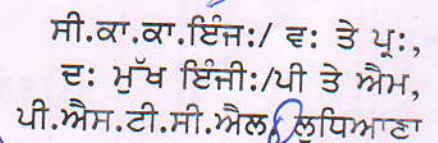 ਸੀ.ਕਾ.ਕਾ.ਇੰਜ:/ ਵ: ਤੇ ਪ੍ਰ:,
ਦ: ਮੁੱਖ ਇੰਜੀ:/ਪੀ ਤੇ ਐਮ,
ਪੀ.ਐਸ.ਟੀ.ਸੀ.ਐਲ, ਲੁਧਿਆਣਾ